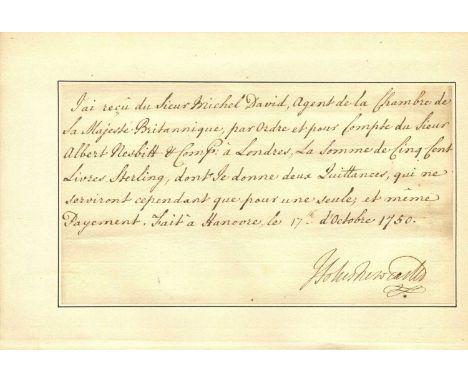 J'ai reçû du Sieur Michel David, Agent de la Chambre de
Sa Majesté Britannique, par Ordre et pour Compte du Sieur
Albert Nesbitt & Comp: à Londres, La Somme de Cinq Cent
Livres Sterling, dont Je donne deux Quittances, qui ne
serviront cependant que pour une seule, et même
Payement. Fait à Hanovre, le 17.e d'Octobre 1750.
Holles Newcastle